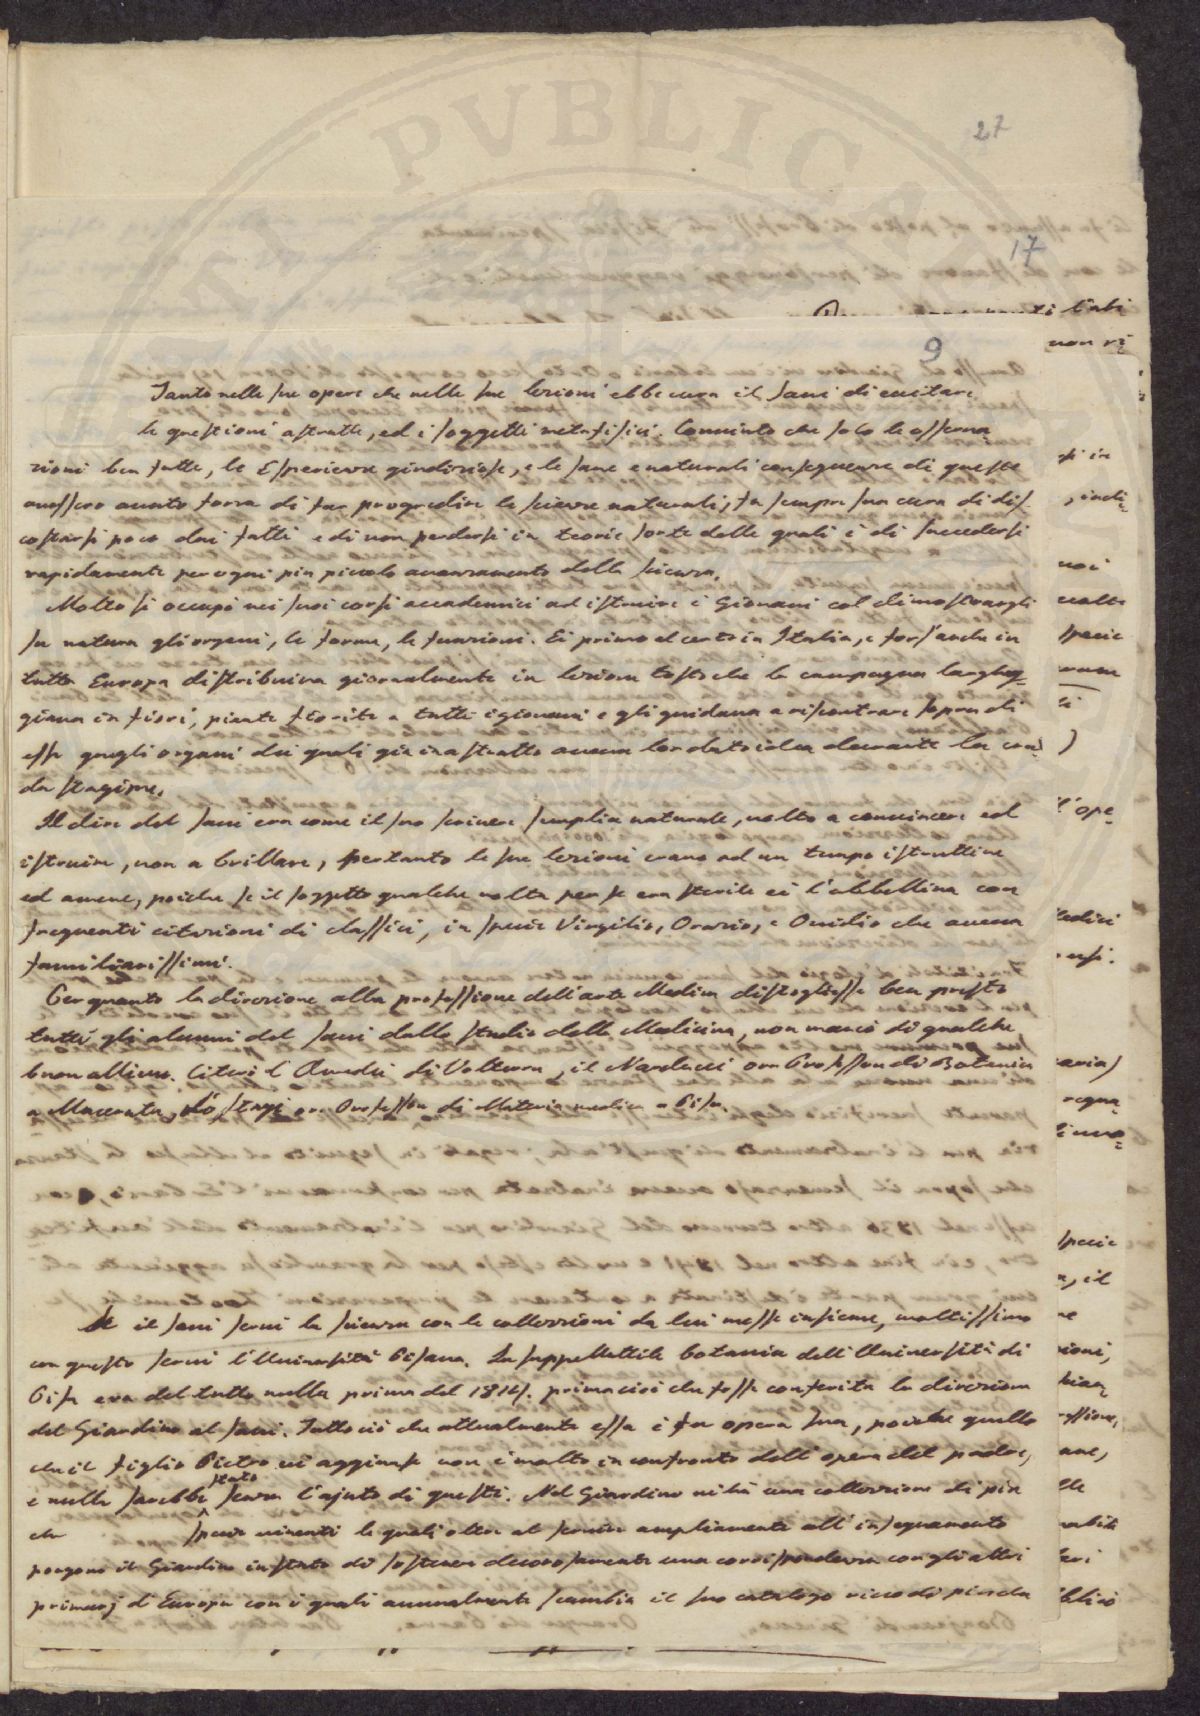 PVBLICA
27
17
9
Tanto nelle sue opere che nelle sue lezioni ebbe cura il Savi di evitare
le questioni astratte, ed i soggetti metafisici. Convinto che solo le osserva
zioni ben fatte, le Esperienze giudiziose, e le sane e naturali conseguenze di queste
avessero avuto forza di far progredire le scienze naturali, fu sempre sua cura di dis-
costarsi poco dai fatti e di non perdersi in teorie sorte delle quali è di succedersi
rapidamente per ogni più piccolo avanzamento della scienza.
Molto si occupò nei suoi corsi accademici ad istruire i Giovani col dimostrargli
su natura gli organi, le forme, le funzioni. Ei primo al certo in Italia, e fors'anche in
tutta Europa distribuiva giornalmente in lezione tosto che la campagna largheg-
giava in fiori, piante fiorite a tutti i giovani e gli guidava a riscontrare sopra di
esse quegli organi dei quali già in astratto aveva lor dato idea durante la cru
da stagione.
Il dire del Savi era come il suo scrivere semplice naturale, volto a convincere ed
istruire, non a brillare, pertanto le sue lezioni erano ad un tempo istruttive
ed amene, poiche se il soggetto qualche volta per se era sterile ei l'abbelliva con
frequenti citazioni di classici, in specie Virgilio, Orazio, e Ovidio che aveva
familiarissimi.
Per quanto la direzione alla professione dell'arte Medica distogliesse ben presto
tutti gli alunni del Savi dallo studio della Medicina, non mancò di qualche
buon allievo. Citerò l' Amidei di Volterra, il Narducci ora Professore di Botanica
a Macerata, lo ora Professore di Materia medica a Pisa.
Se il Savi servì la scienza con le collezioni da lui messe insieme, moltissimo
con questo servì l'Università Pisana. La suppellettile botanica dell'Università di
Pisa era del tutto nulla prima del 1814, prima cioè che fosse conferita la direzione
del Giardino al Savi. Tutto ciò che attualmente essa è fu opera sua, poiche quello
che il figlio Pietro vi aggiunse non è molto in confronto dell'opera del padre,
e nulla sarebbe stato senza l'ajuto di questi. Nel Giardino vi hà una collezione di più
che specie viventi le quali oltre al servire ampliamente all'insegnamento
pongono il Giardino in stato di sostenere decorosamente una corrispondenza con gli altri
primarj d'Europa con i quali annualmente scambia il suo catalogo ricco di più che